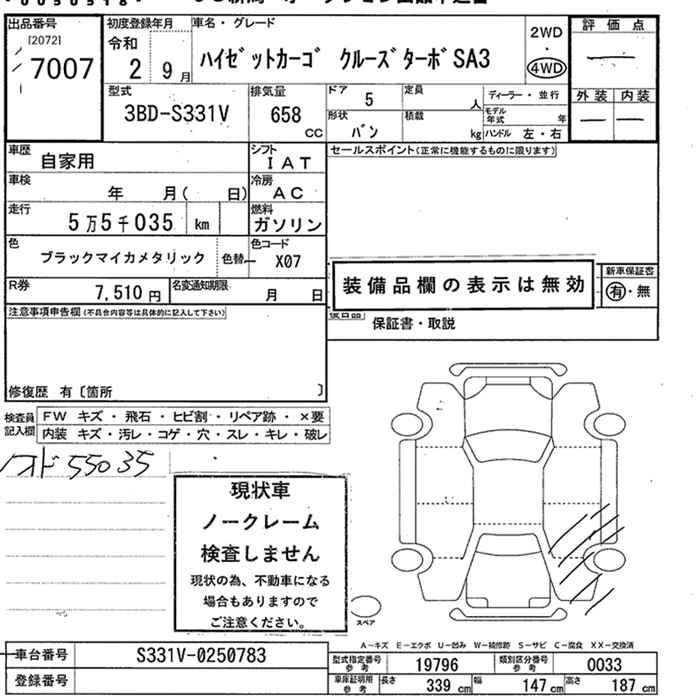 出品番号
[2072]
7007
初度登録年月
令和
2 9月
車名・グレード
ハイゼットカーゴ クルーズターボSA3
2WD
・
4WD
評価点
—
外装 内装
— —
型式
3BD-S331V
排気量
658
CC
ドア
5
定員
人
ディーラー・並行
形状
バン
積載
kg
モデル年式 年
ハンドル 左・右
車歴
自家用
シフト
IAT
セールスポイント(正常に機能するものに限ります)
車検
年 月( 日)
冷房
AC
走行
5万5千035 km
燃料
ガソリン
色
ブラックマイカメタリック
色替
色コード
X07
装備品欄の表示は無効
新車保証書
有・無
R券
7,510円
名変通知期限
月 日
保証書・取説
注意事項申告欄(不具合内容等は具体的に記入して下さい)
修復歴 有〔箇所 〕
検査員
記入欄
FW キズ・飛石・ヒビ割・リペア跡・×要
内装 キズ・汚レ・コゲ・穴・スレ・キレ・破レ
55035
現状車
ノークレーム
検査しません
現状の為、不動車になる
場合もありますので
ご注意ください。
スペア
A-キズ E-エクボ U-凹み W-補修跡 S-サビ C-腐食 XX-交換済
車台番号
S331V-0250783
登録番号
型式指定番号
参考
19796
類別区分番号
参考
0033
車庫証明用
参考
長さ
339 cm
幅
147 cm
高さ
187 cm